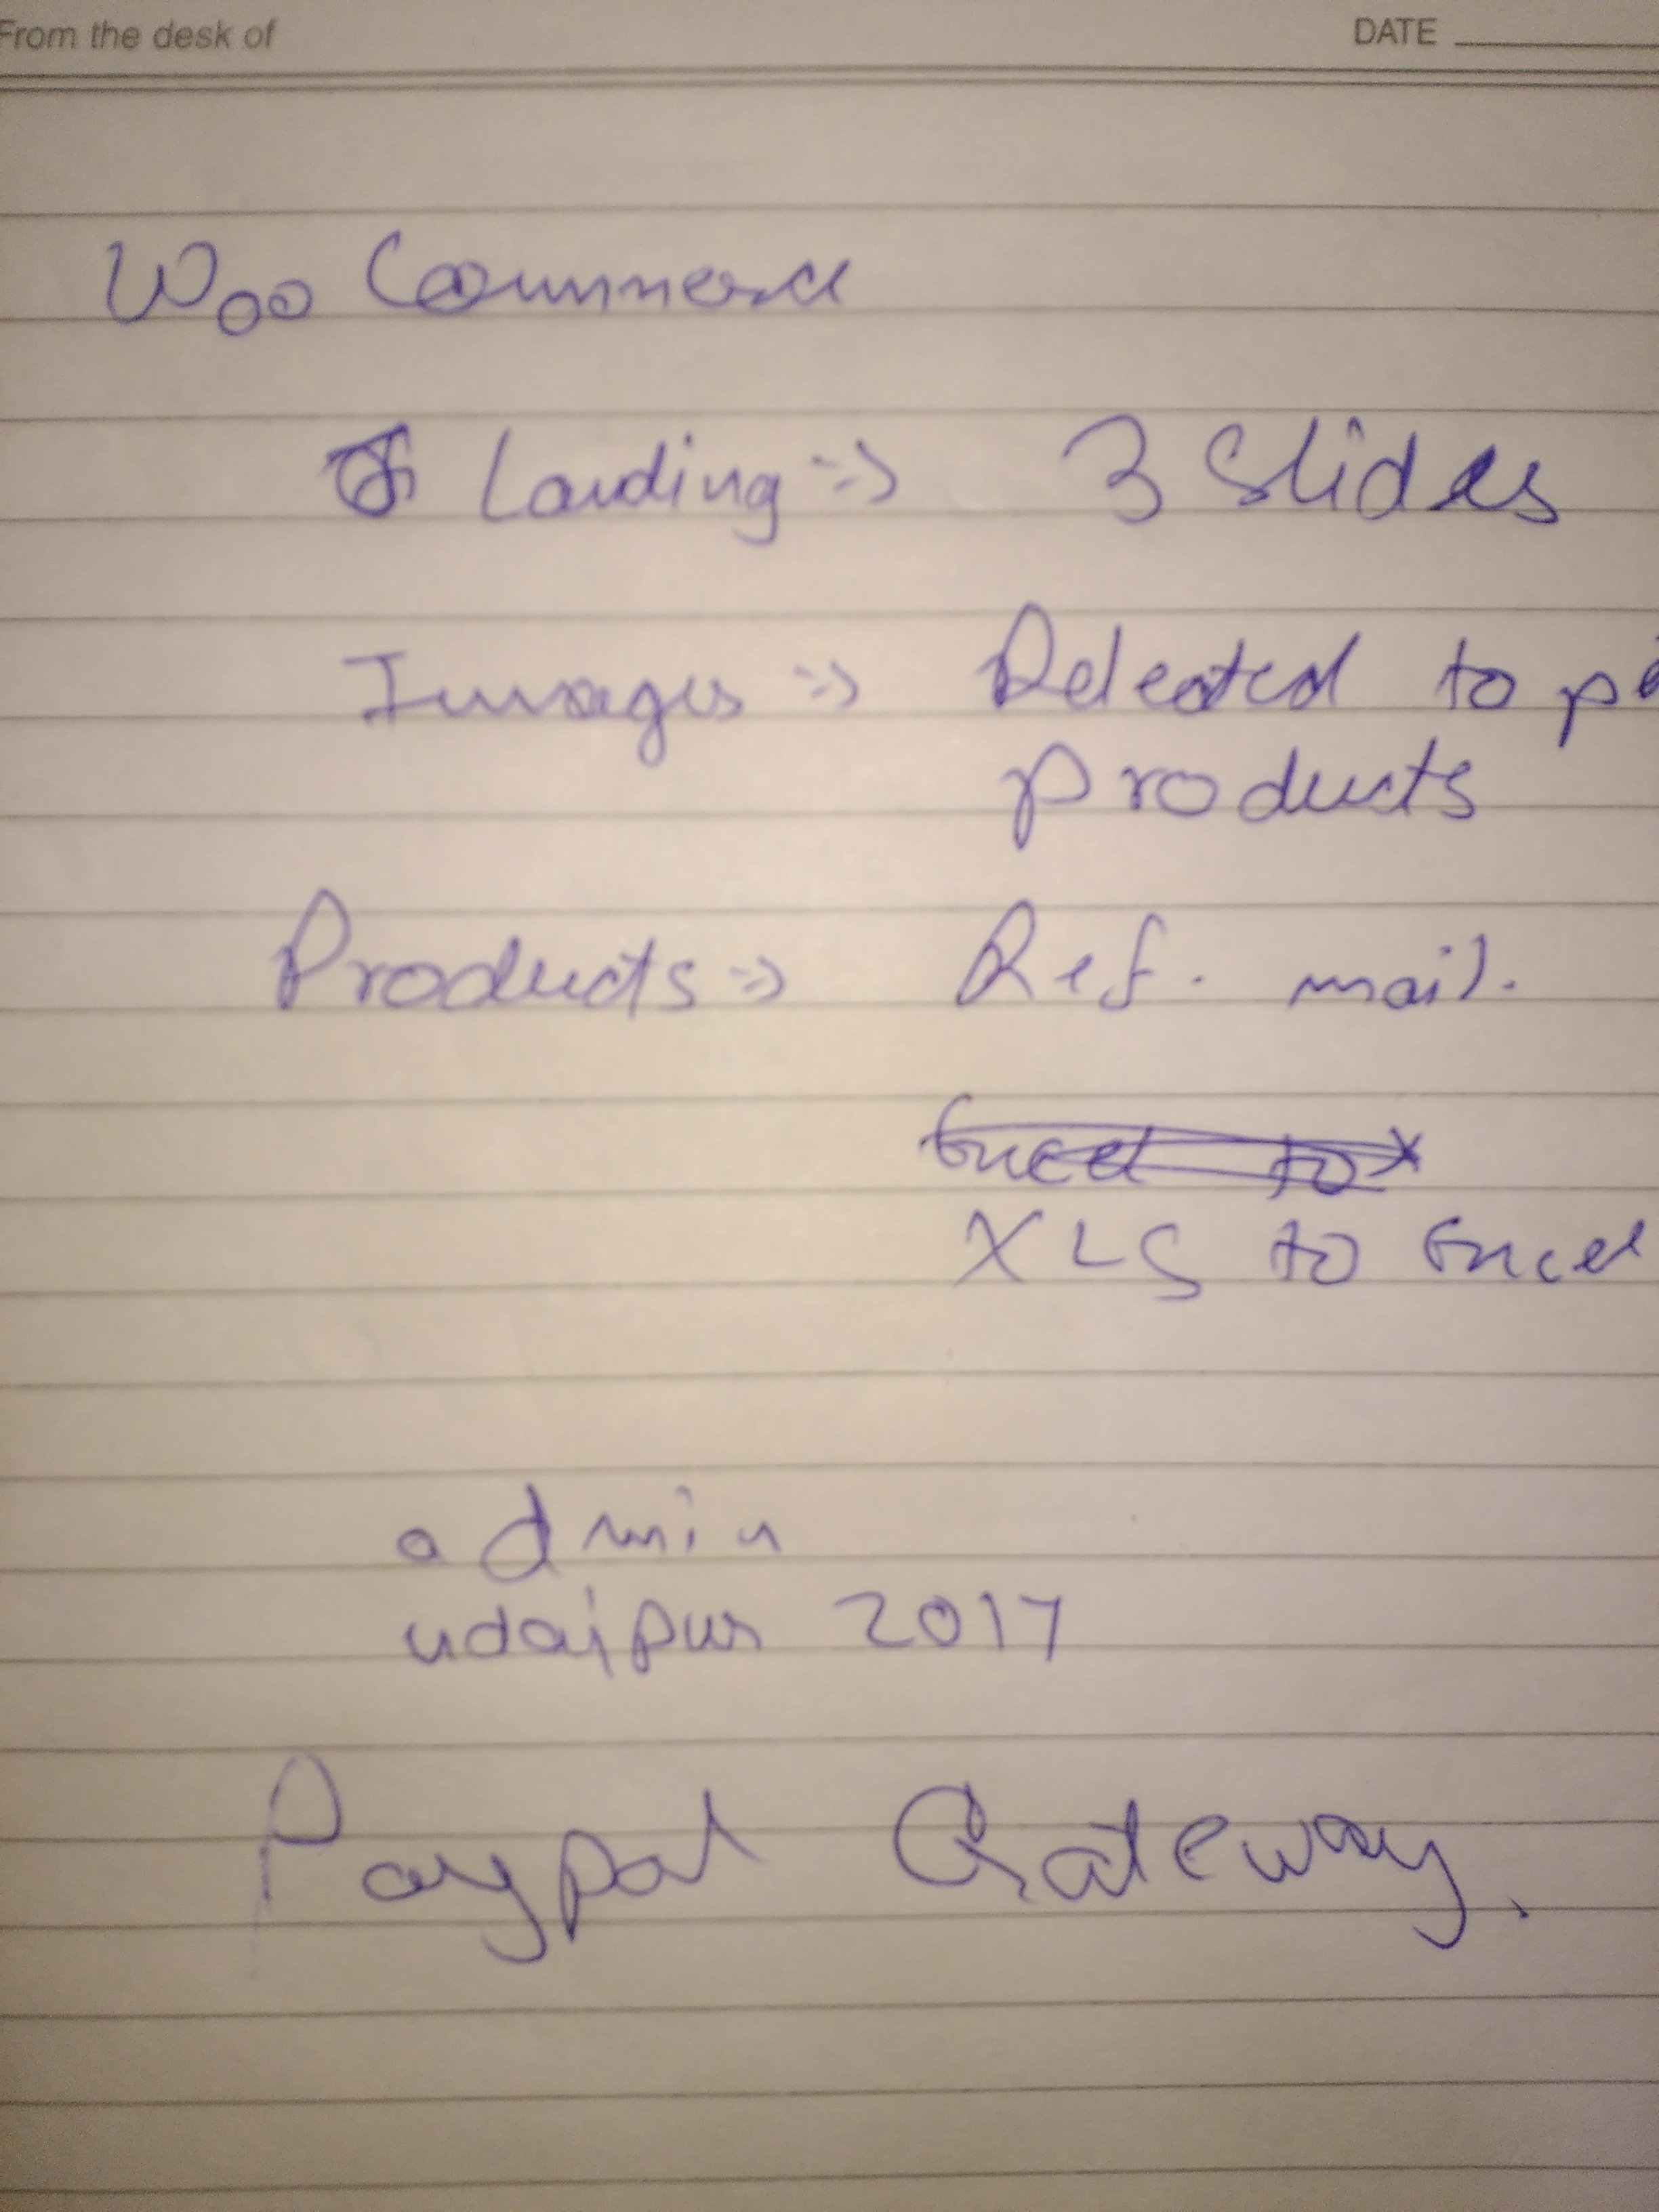 From the desk of DATE
Woo Commerce
Landing => 3 Slides
Images => Releated to
products
Products => Ref. mail.
Excel to x
XLS to Excel
admin
udaipur 2017
Paypal Gateway.